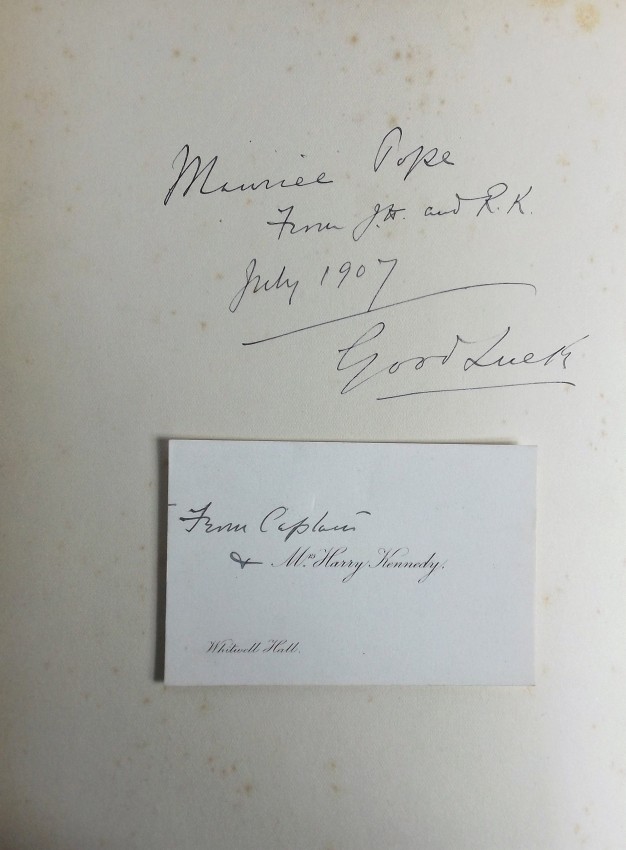 Maurice Pope
From J.H. and R.K.
July 1907
Good Luck
From Captain
& Mrs Harry Kennedy.
Whitwell Hall.